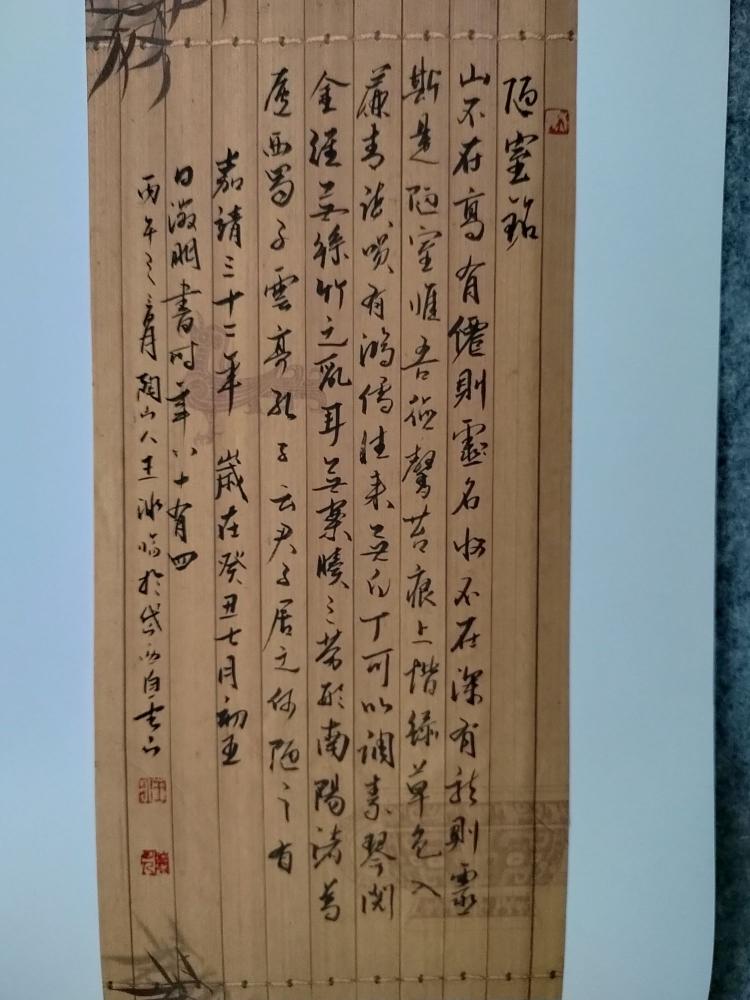 陋室銘
山不在高有僊則靈名水不在深有龍則靈
斯是陋室惟吾德馨苔痕上階綠草色入
簾青談咲有鴻儒往來無白丁可以調素琴閱
金經無絲竹之亂耳無案牘之勞形南陽諸葛
廬西蜀子雲亭孔子云君子居之何陋之有
嘉靖三十二年 歲在癸丑七月初五
日徵明書時年八十有四
丙午之月陶山人王冰臨於岱西